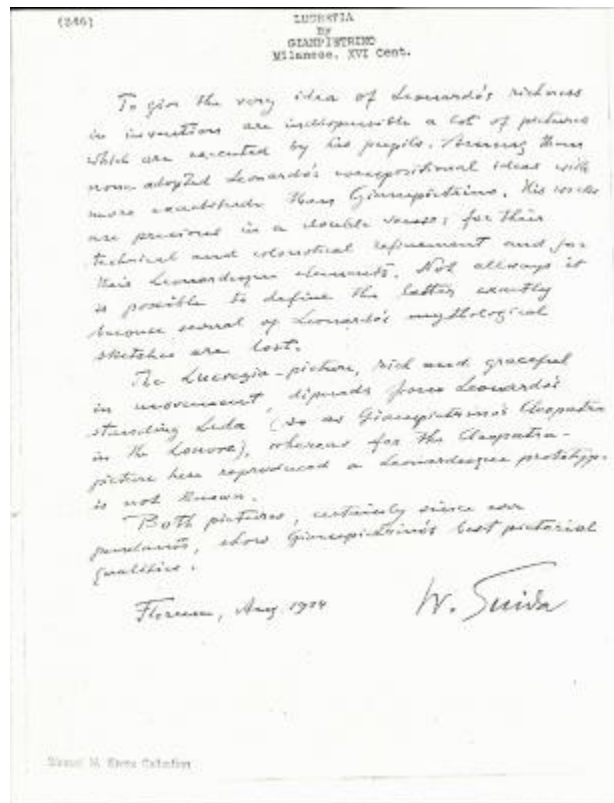 (246)
LUCRETIA
By
GIANPIETRINO
Milanese, XVI Cent.
To give the very idea of Leonardo's richness
in inventions are indispensible a lot of pictures
which are executed by his pupils. Among them
none adopted Leonardo's compositional ideas with
more exactitude than Giampietrino. His works
are precious in a double sense: for their
technical and colouristical refinement and for
their Leonardesque elements. Not allways it
is possible to define the latter exactly
because several of Leonardo's mythological
sketches are lost.
The Lucrezia-picture, rich and graceful
in movement, dipends from Leonardo's
standing Leda (so as Giampietrino's Cleopatra
in the Louvre), whereas for the Cleopatra-
picture here reproduced a Leonardesque prototype
is not known.
Both pictures, certainly since ever
pendants, show Giampietrino's best pictorial
qualities.
Florence, Aug. W. Suida
Samuel H. Kress Collection